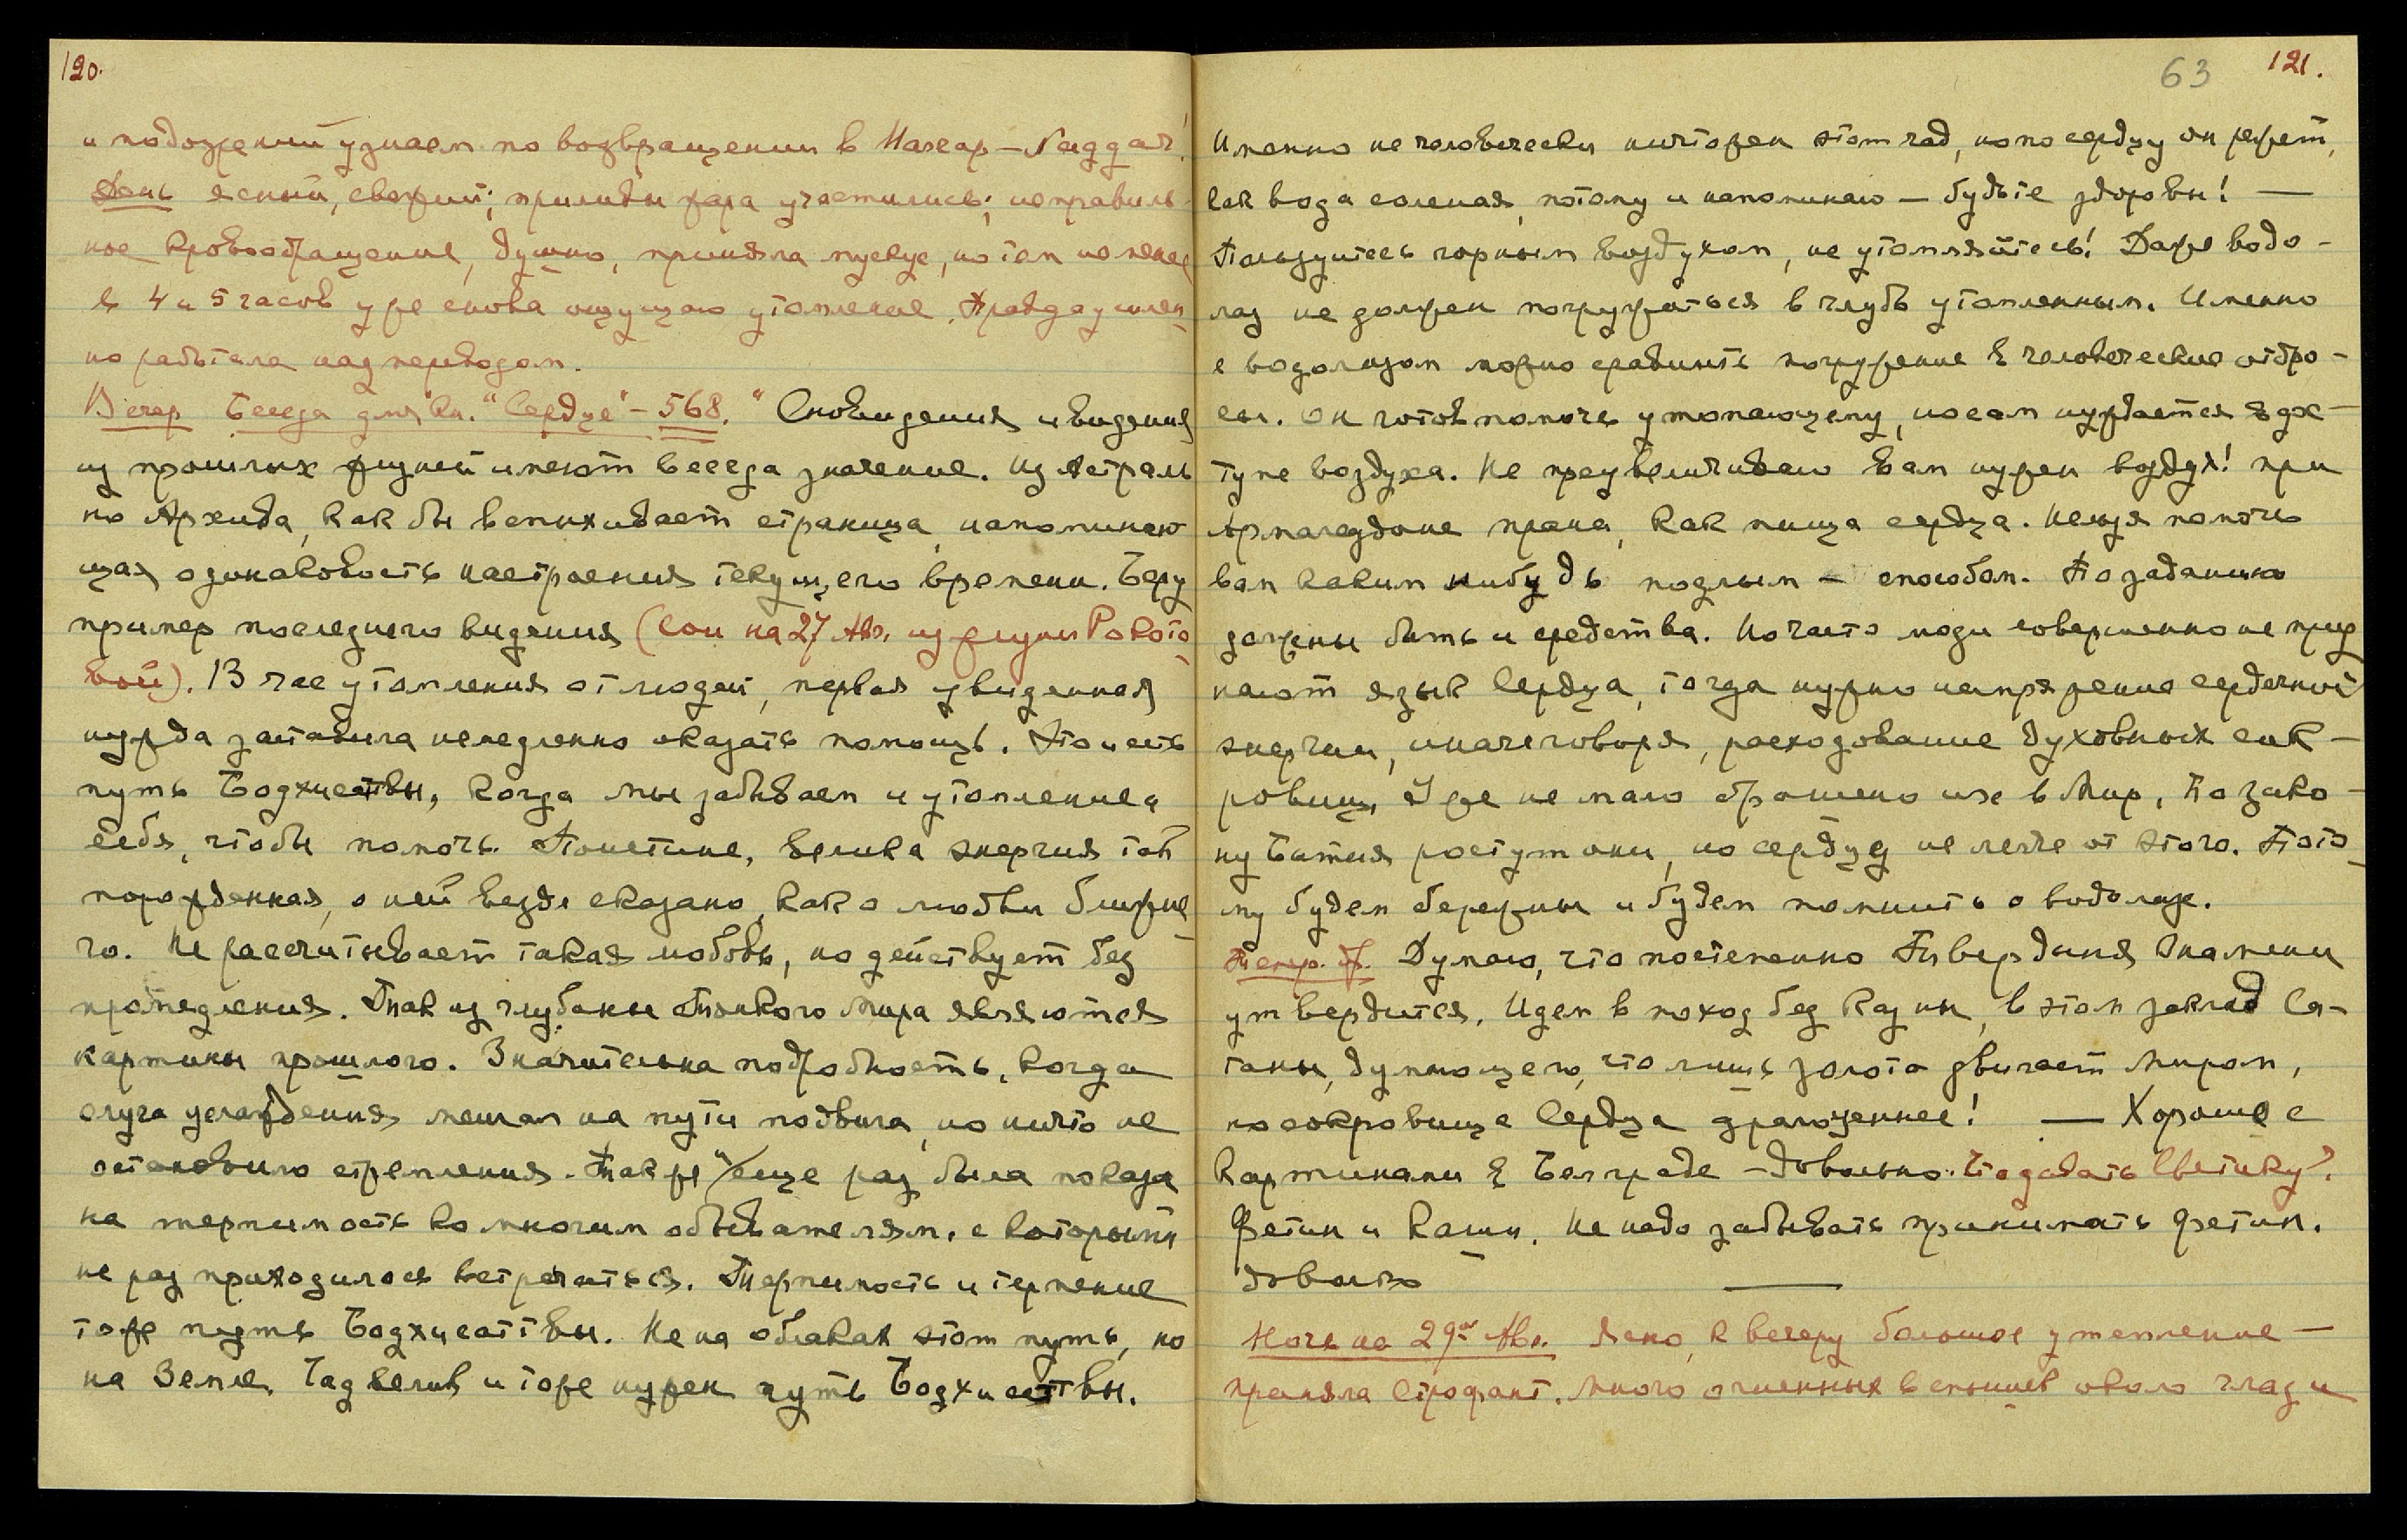 120.
и подозрений узнаем по возвращении в Наггар
День ясный, свежий; приливы жара участились; неправиль-
ное кровообращение, душно, приняла мускус, но тем не менее
в 4 и 5 часов уже снова ощущаю утомление. Правда усилен-
но работала над переводом.
Вечер Беседа для кн. "Сердце" – 568. "Сновидения и видения
из прошлых жизней имеют всегда значение. Из Астраль
но Архива, как бы вспыхивает страница, напоминаю
щая одинаковость настроения текущего времени. Беру
пример последнего видения (сон на 27 Авг. из жизни Рокото
вой). В час утомления от людей, первая увиденная
нужда заставила немедленно оказать помощь. Это и есть
путь Бодхисаттвы, когда мы забываем и утомление и
себя, чтобы помочь. Поистине, велика энергия той
порожденная, о ней везде сказано, как о любви ближне
го. Не рассчитывает такая любовь, но действует без
промедления. Так из глубины Тонкого Мира являются
картины прошлого. Значительна подробность, когда
слуга услаждения мешал на пути подвига, но ничто не
остановило стремления. Так же еще раз была показа
на терпимость ко многим обывателям, с которыми
не раз приходилось встречаться. Терпимость и терпение
тоже путь Бодхисаттвы. Не на облаках этот путь, но
на Земле. Гад велик и тоже нужен путь Бодхисаттвы.
63 121.
Именно не человечески ничтожен этот гад, но по сердцу он режет,
как вода соленая, потому и напоминаю – будьте здоровы! —
Пользуйтесь горным воздухом, не утомляйтесь! Даже водо-
лаз не должен погружаться в глубь утомленным. Именно
с водолазом можно сравнить погружение в человеческие отбро-
сы. Он готов помочь утопающему, но сам нуждается в до-
тупе воздуха. Не преувеличиваю Вам нужен воздух! при
Армагеддоне прана, как пища сердца. Нельзя помочь
вам каким нибудь подлым – способом. По заданию
должны быть и средства. Но часто люди совершенно не приз
нают язык Сердца, тогда нужно напряжение сердечной
энергии, иначе говоря, расходование духовных сок-
ровищ. Уже не мало брошено их в Мир, По зако-
ну Бытия растут они, но сердцу не легче от этого. Пото-
му будем бережны и будем помнить о водолазе.
Думаю, что постепенно Твердыня Знамени
утвердится. Идем в поход без казны, в этом заклад Са-
таны, думающего, что лишь золото двигает миром,
но сокровище Сердца драгоценнее! — Хорошо с
картинами в Белграде – довольно. Подавать Светику?
Фетин и Кашн. Не надо забывать принимать фетин.
Довольно —
Ночь на 29ое Авг. Ясно, к вечеру большое утомление –
приняла Строфант. Много огненных вспышек около глаз и